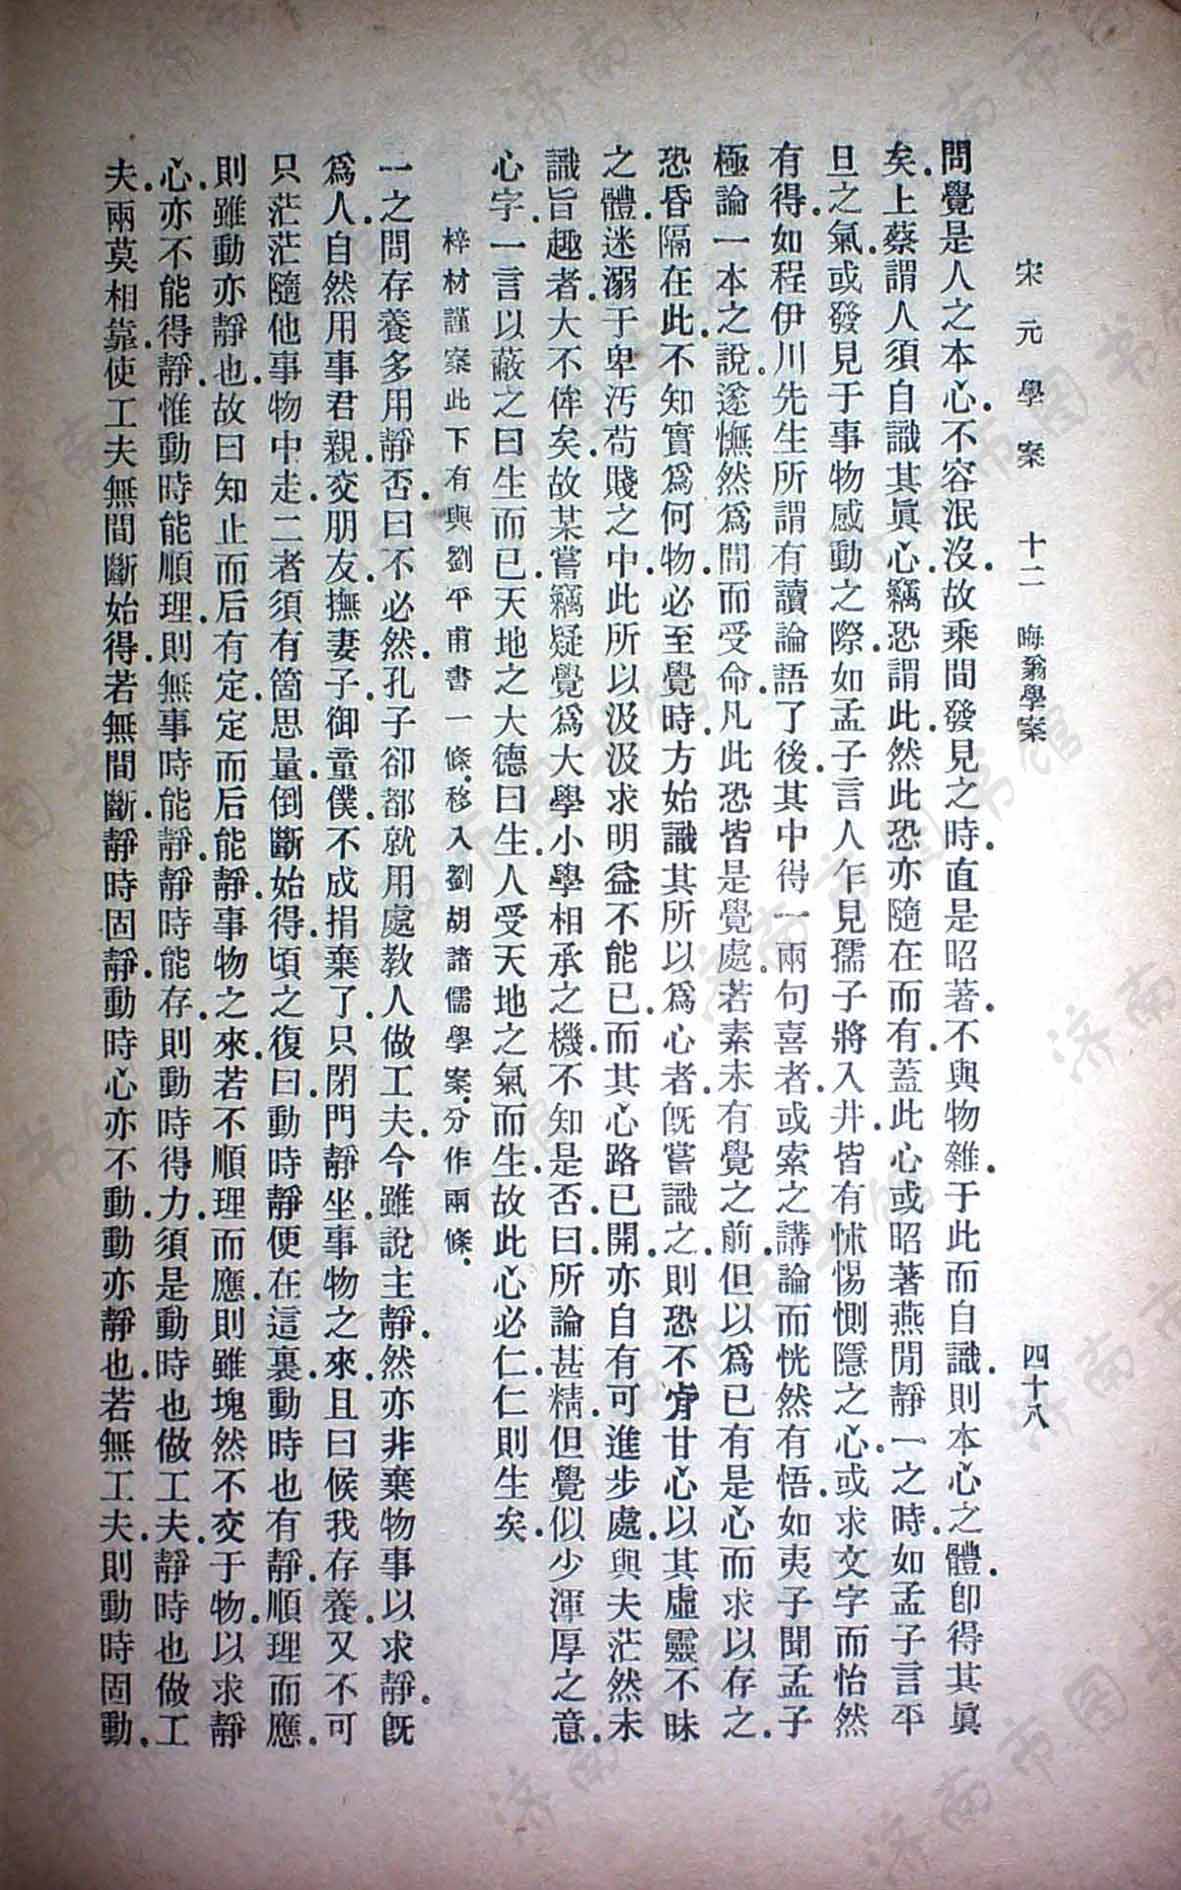 宋元學案 十二 晦翁學案 四十八
問覺是人之本心.不容泯沒.故乘間發見之時.直是昭著.不與物雜.于此而自識.則本心之體.卽得其眞
矣.上蔡謂人須自識其眞心.竊恐謂此.然此恐亦隨在而有.蓋此心或昭著燕閒靜一之時.如孟子言平
旦之氣.或發見于事物感動之際.如孟子言人乍見孺子將入井.皆有怵惕惻隱之心.或求文字而怡然
有得.如程伊川先生所謂有讀論語了後.其中得一兩句喜者.或索之講論而恍然有悟.如夷子聞孟子
極論一本之說.遂憮然爲問而受命.凡此恐皆是覺處.若素未有覺之前.但以爲已有是心而求以存之.
恐昏隔在此.不知實爲何物.必至覺時.方始識其所以爲心者.旣嘗識之.則恐不肯甘心以其虛靈不昧
之體.迷溺于卑汚苟賤之中.此所以汲汲求明益不能已.而其心路已開.亦自有可進步處.與夫茫然未
識旨趣者.大不侔矣.故某嘗竊疑覺爲大學小學相承之機.不知是否.曰.所論甚精.但覺似少渾厚之意.
心字一言以蔽之曰生而已.天地之大德曰生.人受天地之氣而生.故此心必仁.仁則生矣.
梓材謹案此下有與劉平甫書一條.移入劉胡諸儒學案.分作兩條.
一之問存養多用靜否.曰.不必然.孔子卻都就用處教人做工夫.今雖說主靜.然亦非棄物事以求靜.旣
爲人.自然用事君親.交朋友.撫妻子.御童僕.不成捐棄了.只閉門靜坐.事物之來.且曰候我存養.又不可
只茫茫隨他事物中走.二者須有箇思量倒斷始得.頃之復曰.動時靜便在這裏.動時也有靜.順理而應.
則雖動亦靜也.故曰知止而后有定.定而后能靜.事物之來.若不順理而應.則雖塊然不交于物以求靜.
心亦不能得靜.惟動時能順理.則無事時能靜.靜時能存.則動時得力.須是動時也做工夫.靜時也做工
夫.兩莫相靠.使工夫無間斷始得.若無間斷.靜時固靜.動時心亦不動.動亦靜也.若無工夫.則動時固動.